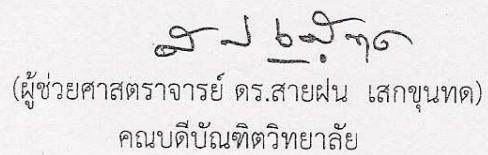 (ผู้ช่วยศาสตราจารย์ ดร.สายฝน เสกขุนทด)
คณบดีบัณฑิตวิทยาลัย